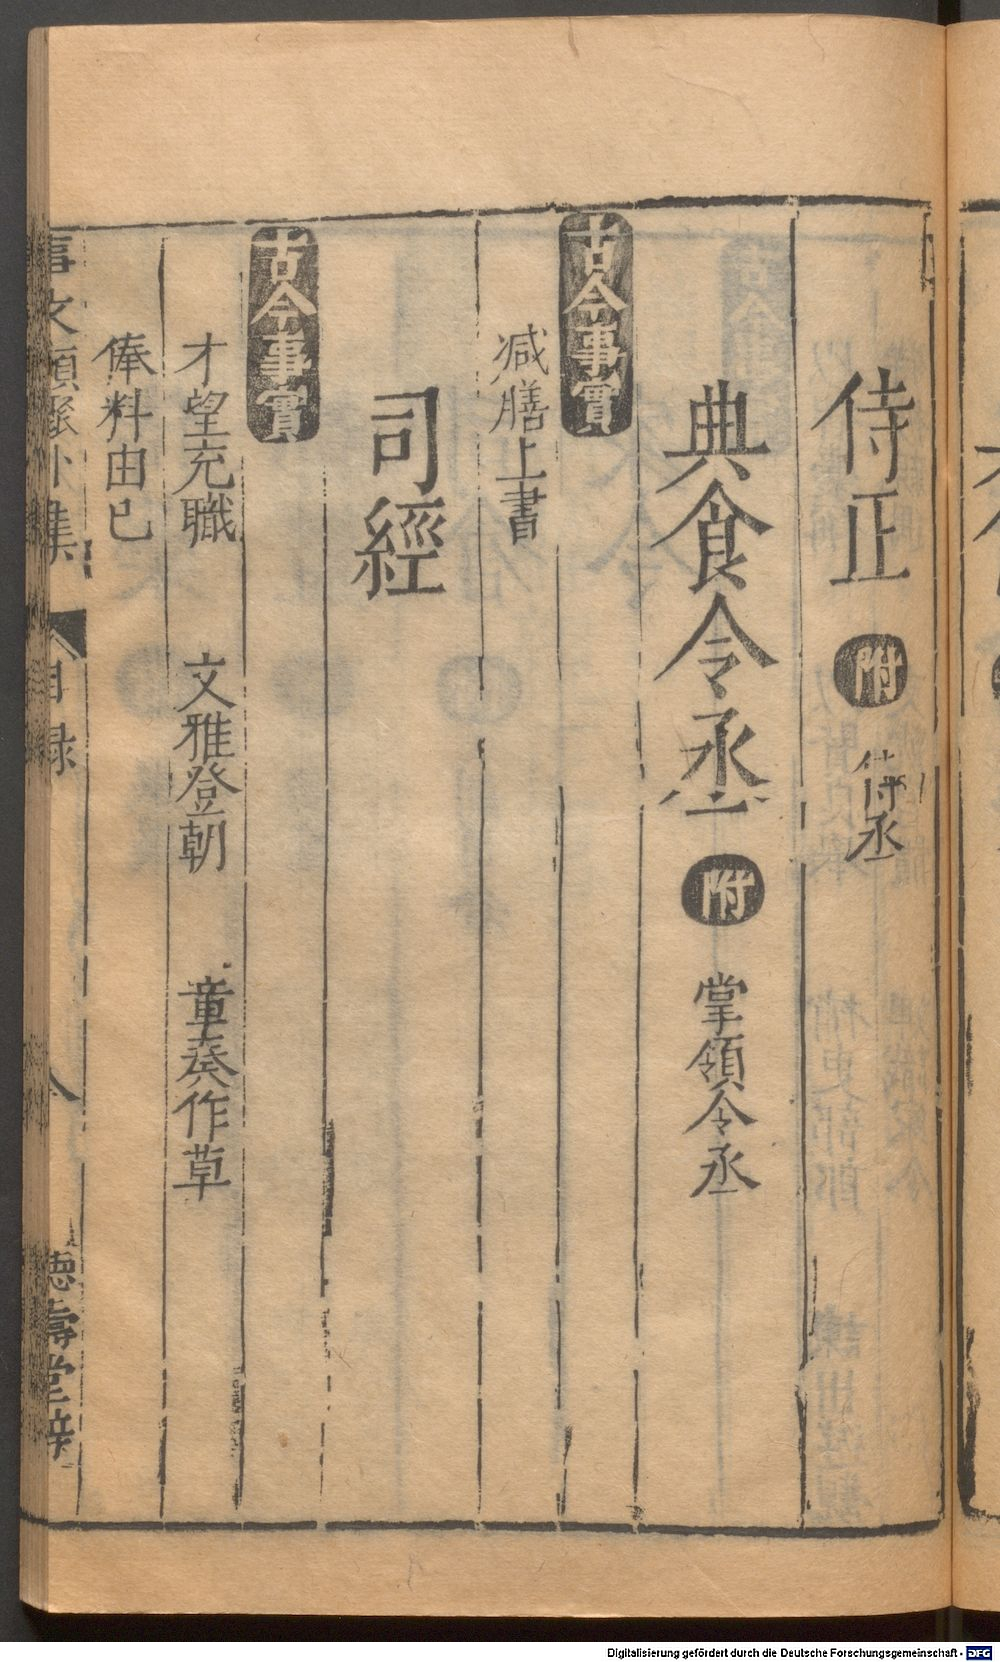 侍正 附 侍丞
典食令丞 附 掌領令丞
古今事實
減膳上書
司經
古今事實
才望充職 文雅登朝 章奏作草
俸料由己
事文類聚外集 目録 德壽堂梓
Digitalisierung gefördert durch die Deutsche Forschungsgemeinschaft - DFG